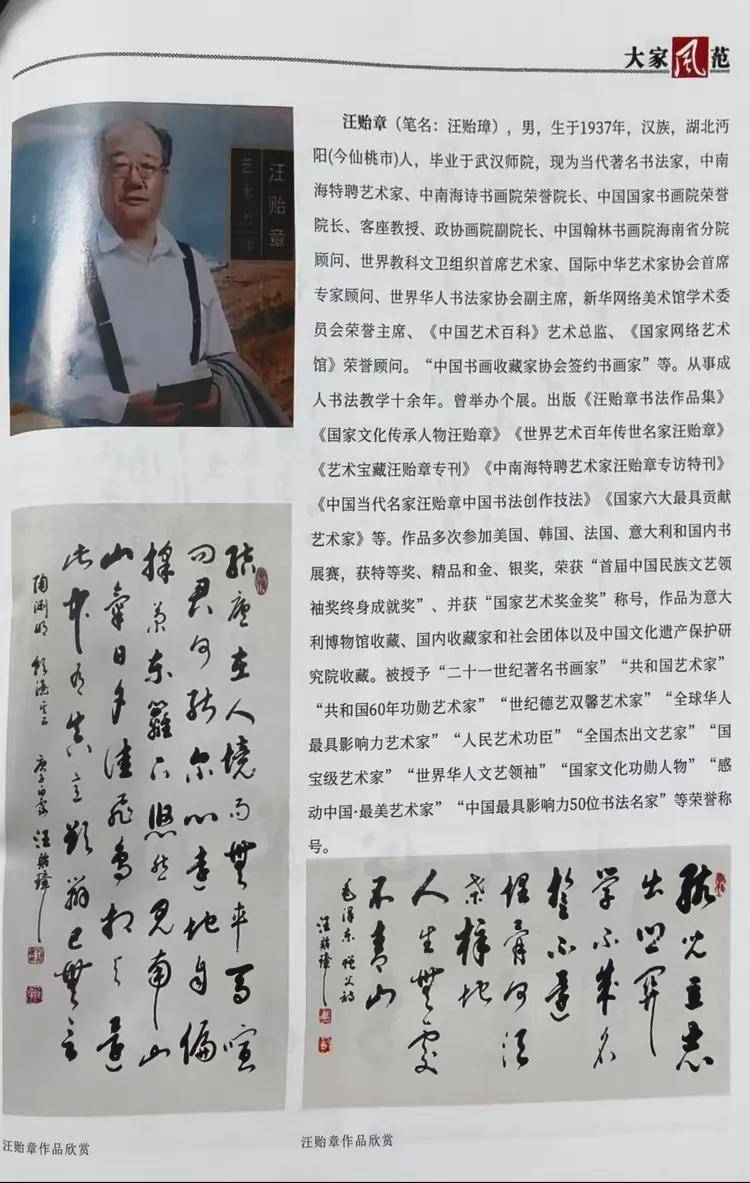 大家风范
汪贻章
艺术大师
汪贻章（笔名：汪贻璋），男，生于1937年，汉族，湖北沔
阳(今仙桃市)人，毕业于武汉师院，现为当代著名书法家，中南
海特聘艺术家、中南海诗书画院荣誉院长、中国国家书画院荣誉
院长、客座教授、政协画院副院长、中国翰林书画院海南省分院
顾问、世界教科文卫组织首席艺术家、国际中华艺术家协会首席
专家顾问、世界华人书法家协会副主席，新华网络美术馆学术委
员会荣誉主席、《中国艺术百科》艺术总监、《国家网络艺术
馆》荣誉顾问。“中国书画收藏家协会签约书画家”等。从事成
人书法教学十余年。曾举办个展。出版《汪贻章书法作品集》
《国家文化传承人物汪贻章》《世界艺术百年传世名家汪贻章》
《艺术宝藏汪贻章专刊》《中南海特聘艺术家汪贻章专访特刊》
《中国当代名家汪贻章中国书法创作技法》《国家六大最具贡献
艺术家》等。作品多次参加美国、韩国、法国、意大利和国内书
展赛，获特等奖、精品和金、银奖，荣获“首届中国民族文艺领
袖奖终身成就奖”、并获“国家艺术奖金奖”称号，作品为意大
利博物馆收藏、国内收藏家和社会团体以及中国文化遗产保护研
究院收藏。被授予“二十一世纪著名书画家”“共和国艺术家”
“共和国60年功勋艺术家”“世纪德艺双馨艺术家”“全球华人
最具影响力艺术家”“人民艺术功臣”“全国杰出文艺家”“国
宝级艺术家”“世界华人文艺领袖”“国家文化功勋人物”“感
动中国·最美艺术家”“中国最具影响力50位书法名家”等荣誉称
号。
結廬在人境而無車馬喧
问君何能尔心遠地自偏
採菊东籬下悠然見南山
山氣日夕佳飛鳥相与還
此中有真意欲辯已無言
陶渊明 飲酒 庚子白露 汪贻璋
孩儿立志
出鄉関
学不成名
誓不還
埋骨何須
桑梓地
人生無處
不青山
毛泽东 赠父诗
汪贻璋
汪贻章作品欣赏
汪贻章作品欣赏